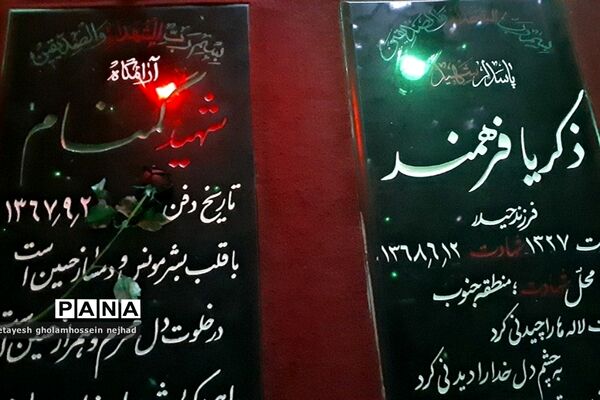 بسم رب الشهداء والصدیقین
پاسدار شهید
ذکریا فرهمند
فرزند حیدر
ت ۱۳۲۷ شهادت ۱۳۶۸٫۶٫۱۲
محل شهادت ؛ منطقه جنوب
لاله ها را چیدنی کرد
به چشم دل خدا را دیدنی کرد
بسم رب الشهداء والصدیقین
آرامگاه
شهید گمنام
تاریخ دفن ۱۳۶۷٫۹٫۲
با قلب بشر مونس و دمساز حسین است
در خلوت دل محرم و همراز حسین است
PANA
etayesh gholamhossein nejhad